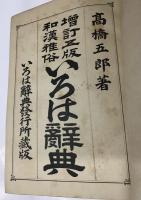 高橋五郎著
増訂二版
和漢雅俗
いろは辭典
いろは辭典發行所藏版